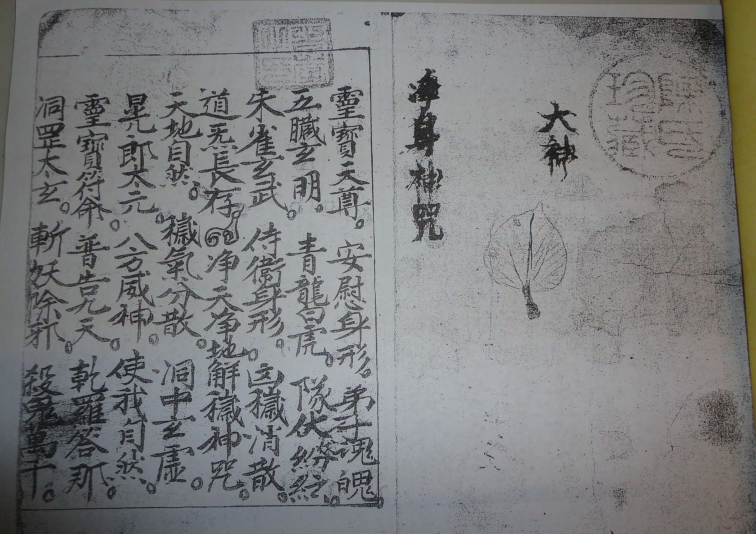 陳氏珍藏
大神
淨身神咒
靈寶天尊。安慰身形。弟子魂魄。
五臟玄明。青龍白虎。隊仗紛紜。
朱雀玄武。侍衛身形。凶穢消散。
道炁長存。净天净地解穢神咒。
天地自然。穢氣分散。洞中玄虛。
晃郎太元。八方威神。使我自然。
靈寶符命。普告九天。乾羅答那。
洞罡太玄。斬妖除邪。殺鬼萬千。